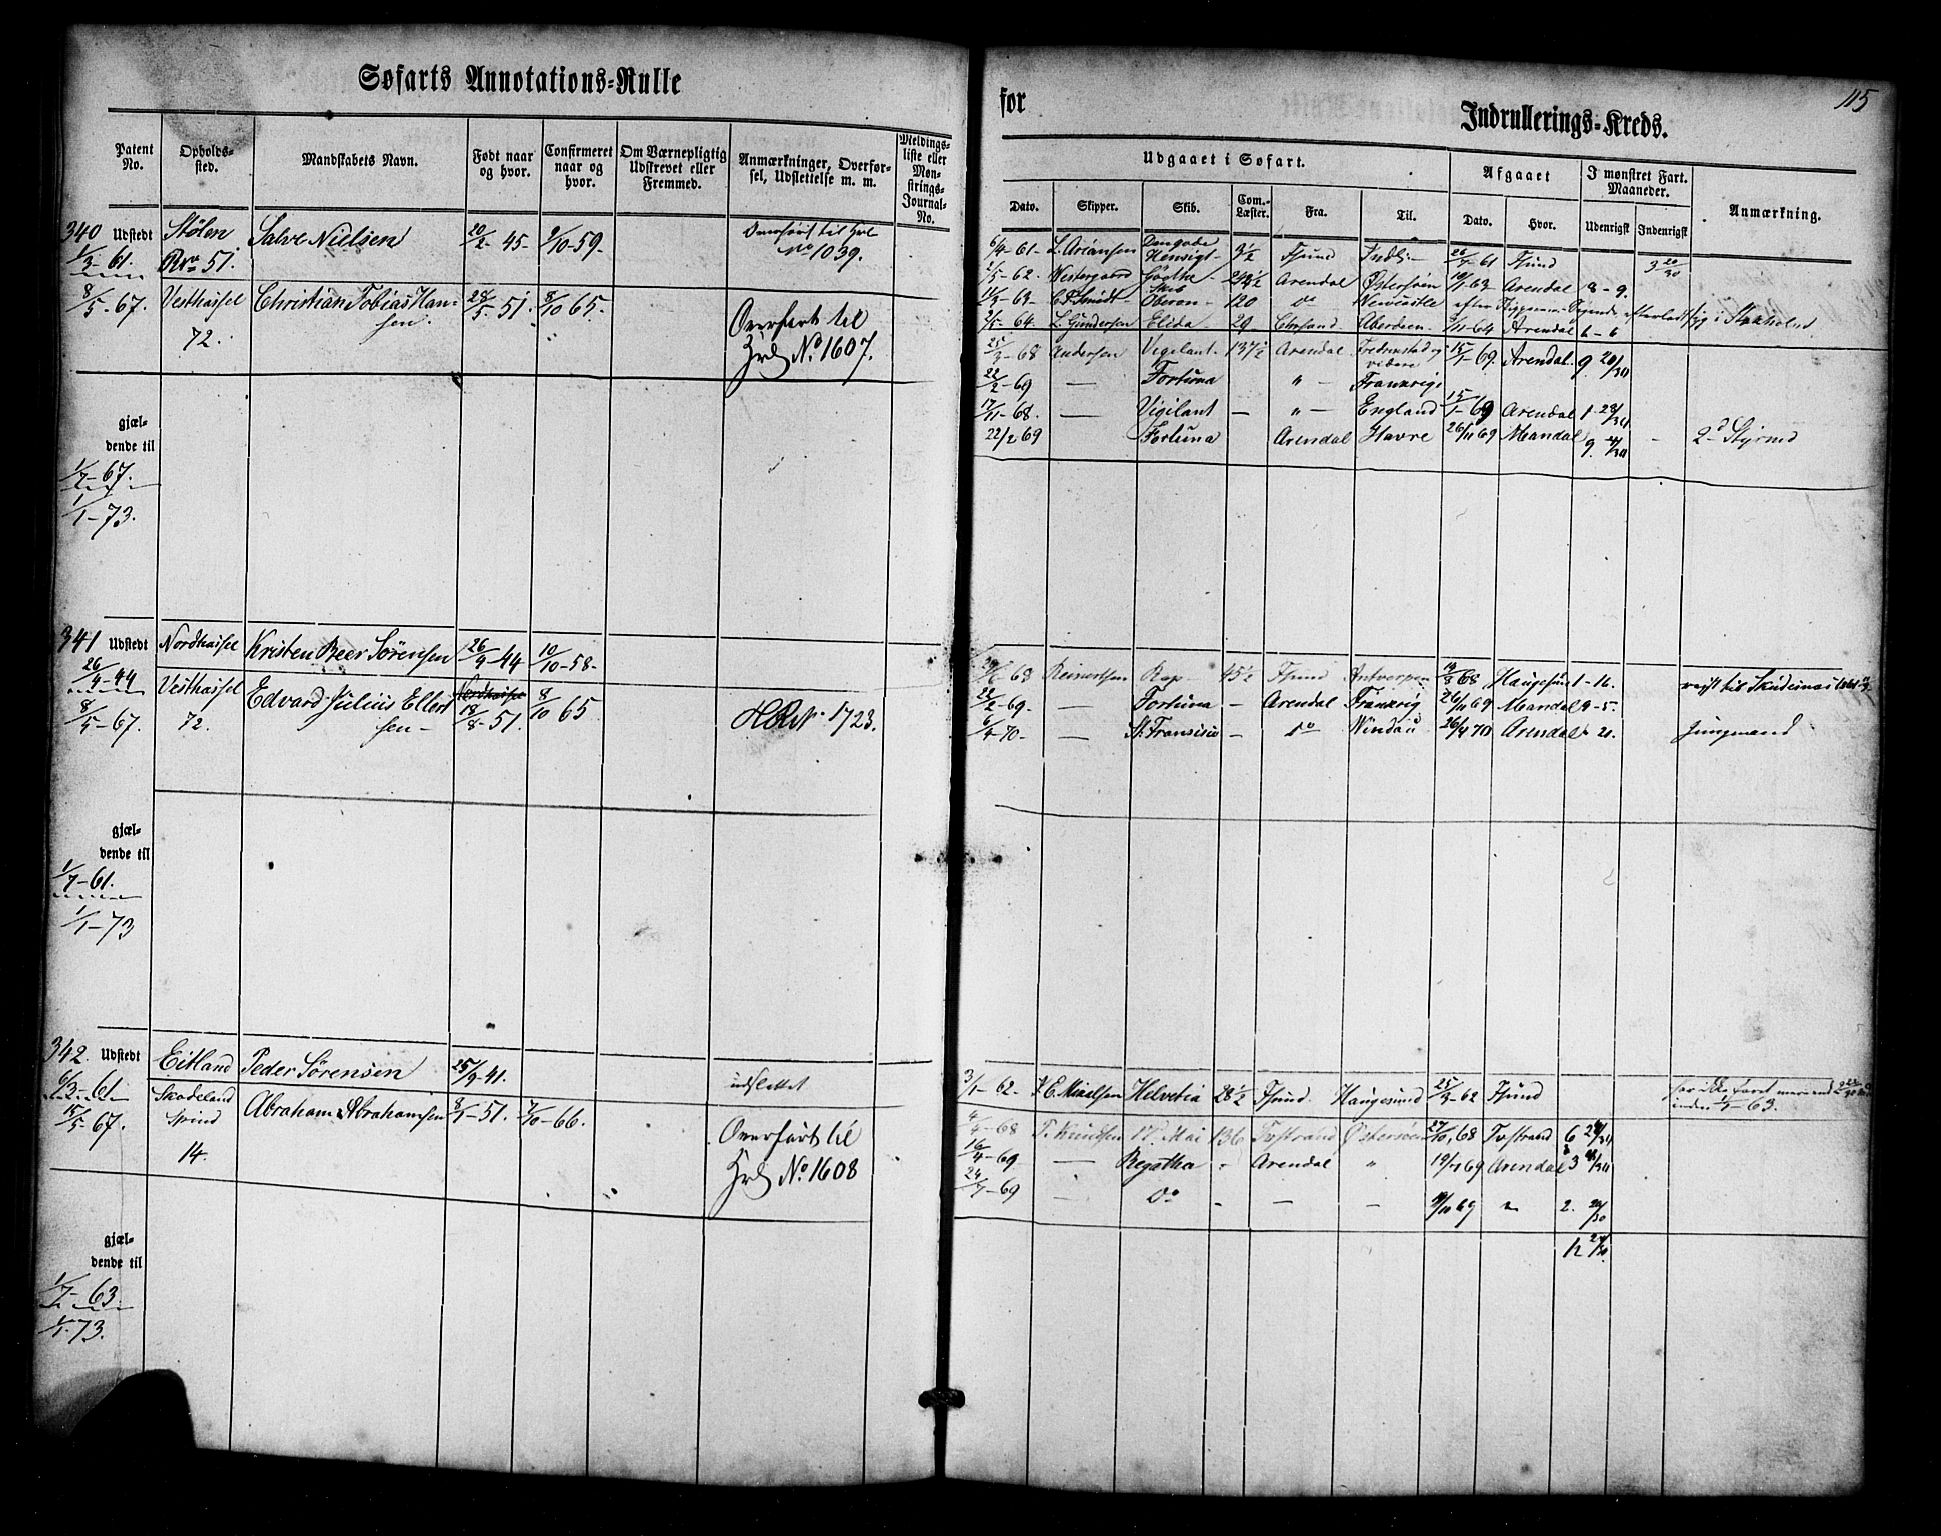 Søfarts Annotations-Rulle
Patent No.
Opholds-sted.
Mandskabets Navn.
Født naar og hvor.
Confirmeret naar og hvor.
Om Værnepligtig Udskrevet eller Fremmed.
Anmærkninger, Overførsel, Udslettelse m. m.
Meldings-liste eller Mønstrings-Journal-No.
340 Udstedt
1/3-61.
Stølen
51.
Salve Nielsen
20/2-45-
9/10-59-
Overført til
No 1039.
8/5-67.
Vesthassel
72.
Christian Tobias Hansen.
28/5-51.
8/10 65-
Overført til
No 1607.
gjæl-
dende til
1/7-67.
1/1-73.
341 Udstedt
26/4-44
Nordhassel
Kristen Beer Sørensen
26/4-44
10/10-58-
8/5-67.
Vesthassel
72.
Edvard Julius Ellertsen-
18/8-51.
8/10 65
1723.
gjæl-
dende til
1/7-61.
1/1-73
342. Udstedt
6/3-61
Eitland
Peder Sørensen
25/9-41.
udslettet
15/5-67.
Skodeland
Spind
14.
Abraham Abrahamsen
8/1-51.
7/10-66.
Overført til
No 1608
gjæl-
dende til
1/7-63
1/1-73.
for
Indrullerings-Kreds.
115
Udgaaet i Søfart.
Afgaaet
I mønstret Fart. Maaneder.
Anmærkning.
Dato.
Skipper.
Skib.
Com. Læster.
Fra.
Til.
Dato.
Hvor.
Udenrigst
Indenrigst
6/4-61- L. Ariansen Hensigt- 3½ Fsund 26/7-61 Fsund 3 20/30
2/5-62. Westergaard Arendal Østersøen 10/1-63 Arendal 8-9.
C. Schmidt Skib Oberon- 120 do Newcastle
2/5-64. L. Gundersen Elida 29 Chrsand Aberdeen- 8/11-64 Arendal 6-6
25/3-68 Andersen Vigilant- 137½ Arendal Fredrikstad og videre 15/1-69. Arendal. 9 20/30
22/2-69 — Fortuna " — Frankrig
17/11-68. — Vigilant — " — England 15/1-69 Arendal 1-28/30
22/2 69 Fortuna Arendal Havre 26/11 69 Mandal 9. 4/30 - 2d Styrmd
68 Reinertsen Rap- 45½ Fsund Antverpen 14/8 68 Haugesund 1-16.
22/2-69- — Fortuna - Arendal Frankrig 26/11 69 Mandal 9-5.
6/4-70- — St. Fransisco - do Windau 26/4 70 Arendal 21. Jungmand
3/1-62- Helvetia 28½ Fsund. Haugesund 25/3-62 Fsund
inden 1/7-63.
4/4-68 T. Knudsen 17. Mai 136 Tvstrand Østersøen 27/10 68 Tvstrand 6 24/30
16/4-69 — Regatha - Arendal " 19/7 69 Arendal 3
24/7-69 — Do - — — 9/10 69 2. 20/30
12